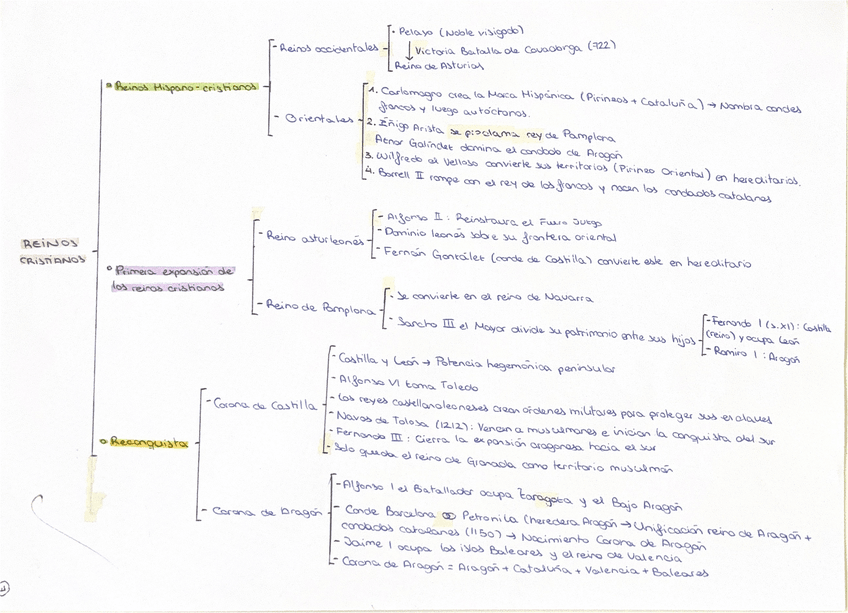 REINOS
CRISTIANOS
Reinos Hispano-cristianos
- Reinos occidentales
- Pelayo (Noble visigodo)
↓ Victoria Batalla de Covadonga (722)
Reino de Asturias
- Orientales
1. Carlomagno crea la Marca Hispánica (Pirineos + Cataluña) → Nombra condes
francos y luego autóctonos.
2. Íñigo Arista se proclama rey de Pamplona
Aznar Galíndez domina el condado de Aragón
3. Wilfredo el Velloso convierte sus territorios (Pirineo Oriental) en hereditarios.
4. Borrell II rompe con el rey de los francos y nacen los condados catalanes
Primera expansión de
los reinos cristianos
- Reino asturleonés
- Alfonso II: Reinstaura el Fuero Juzgo
- Dominio leonés sobre su frontera oriental
- Fernán González (conde de Castilla) convierte este en hereditario
- Reino de Pamplona
- Se convierte en el reino de Navarra
- Sancho III el Mayor divide su patrimonio entre sus hijos
- Fernando I (s.XI): Castilla
(reino) y ocupa León
- Ramiro I: Aragón
Reconquista
- Corona de Castilla
- Castilla y León → Potencia hegemónica peninsular
- Alfonso VI toma Toledo
- Los reyes castellanoleoneses crean órdenes militares para proteger sus enclaves
- Navas de Tolosa (1212): Vencen a musulmanes e inician la conquista del sur
- Fernando III: Cierra la expansión aragonesa hacia el sur
- Solo queda el reino de Granada como territorio musulmán
- Corona de Aragón
- Alfonso I el Batallador ocupa Zaragoza y el Bajo Aragón
- Conde Barcelona ∞ Petronila (heredera Aragón → Unificación reino de Aragón +
condados catalanes (1150) → Nacimiento Corona de Aragón
- Jaime I ocupa las islas Baleares y el reino de Valencia
- Corona de Aragón = Aragón + Cataluña + Valencia + Baleares